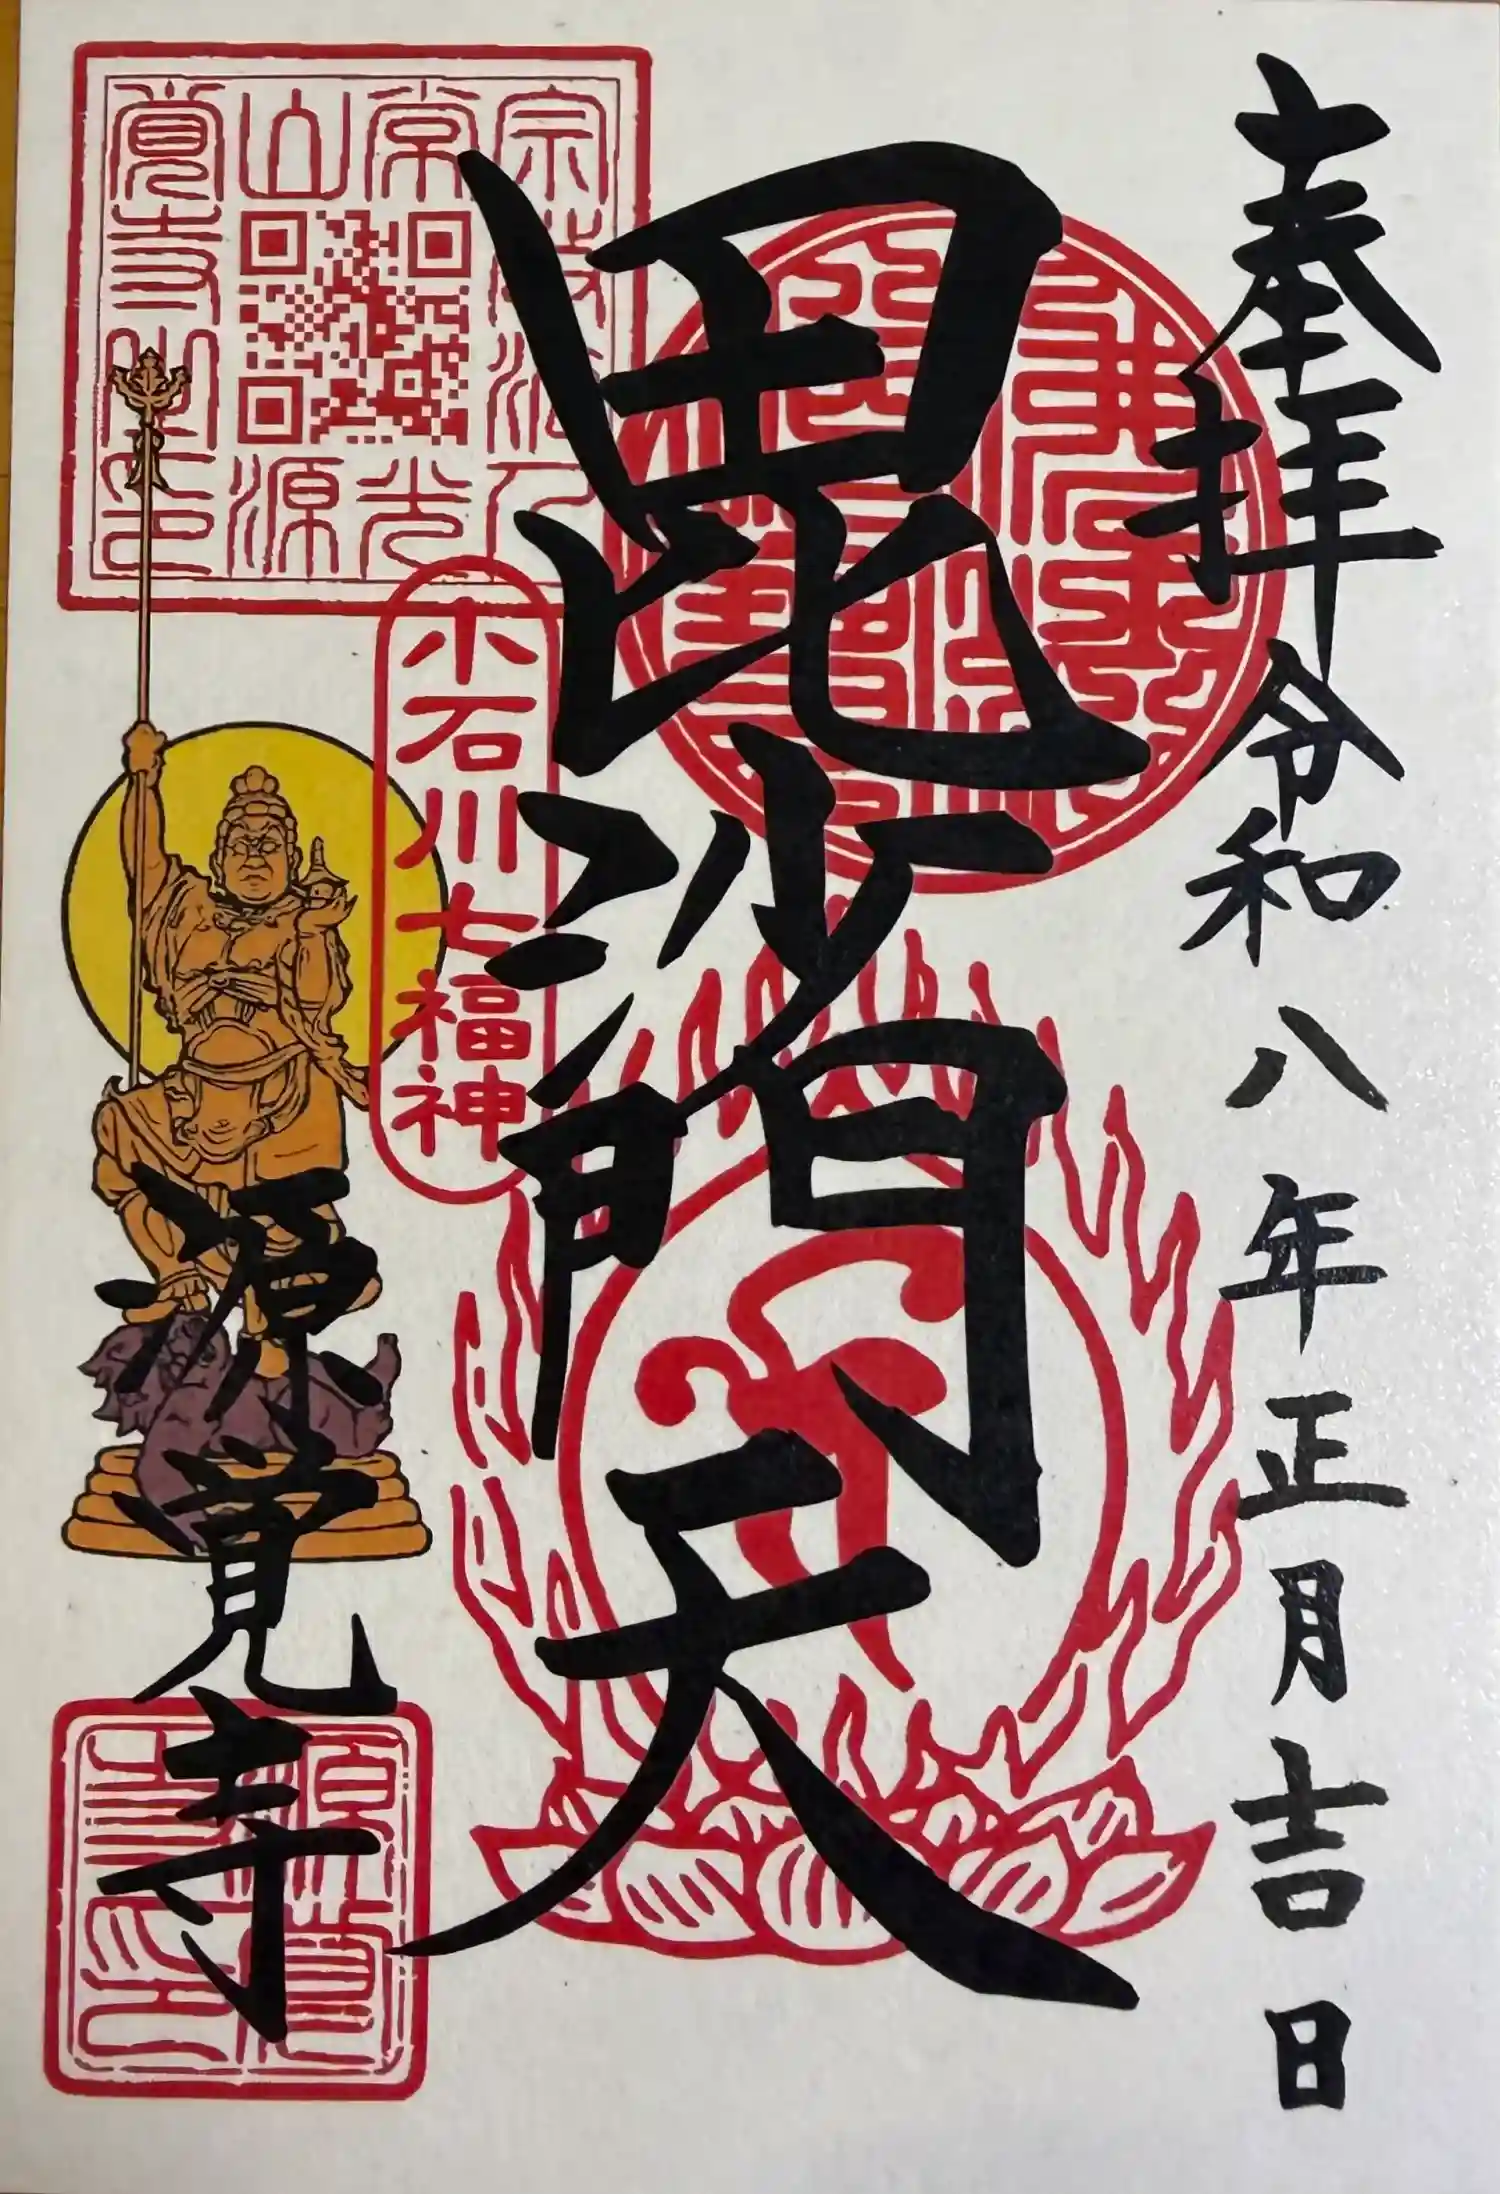 奉拝 令和八年正月吉日
毘沙門天
小石川七福神
源覚寺
宗教法人
常光
山源
覚寺之印
源覚
寺印